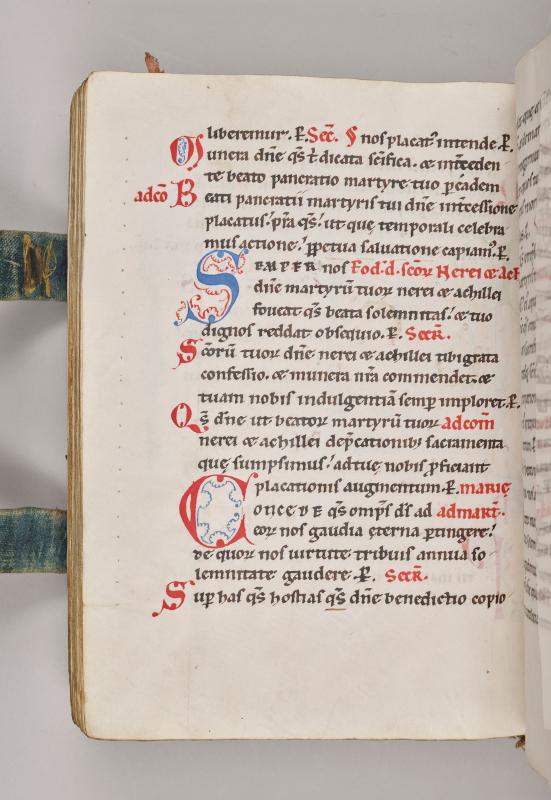 liberemur. ꝑ. Sec̄. § nos placat᷒ intende. ꝑ.
Munera dn̄e qs̄ t̄ dicata sc̄ifica. ⁊ int̄ceden
te beato pancratio martyre tuo ꝑ eadem
adcō Beati pancratii martyris tui dn̄e int̄cessione
placatus! pr̄a qs̄! ut quę temporali celebra
mus actione! ꝑpetua saluatione capiam᷒. ꝑ.
SEMPER nos Eod. d. sc̄oꝝ Nerei ⁊ Ach
dn̄e martyrū tuoꝝ nerei ⁊ achillei
foueat qs̄ beata solemnitas! ⁊ tuo
dignos reddat obsequio. ꝑ. Secr̄.
Sc̄orū tuoꝝ dn̄e nerei ⁊ achillei tibi grata
confessio. ⁊ munera nr̄a commendet. ⁊
tuam nobis indulgentiā semꝑ imploret. ꝑ.
Qs̄ dn̄e ut beatoꝝ martyrū tuoꝝ adcom̄
nerei ⁊ achillei dep̄cationib; sacramenta
quę sumpsimus! ad tuę nobis ꝓficiant
placationis augmentum. ꝑ. marię
CONCEDE qs̄ omps̄ ds̄ ad admart̄.
eoꝝ nos gaudia ęterna ꝑtingere!
de quoꝝ nos uirtute tribuis annua so
lemnitate gaudere. ꝑ. Secr̄.
Suꝑ has qs̄ hostias qs̄ dn̄e benedictio copio